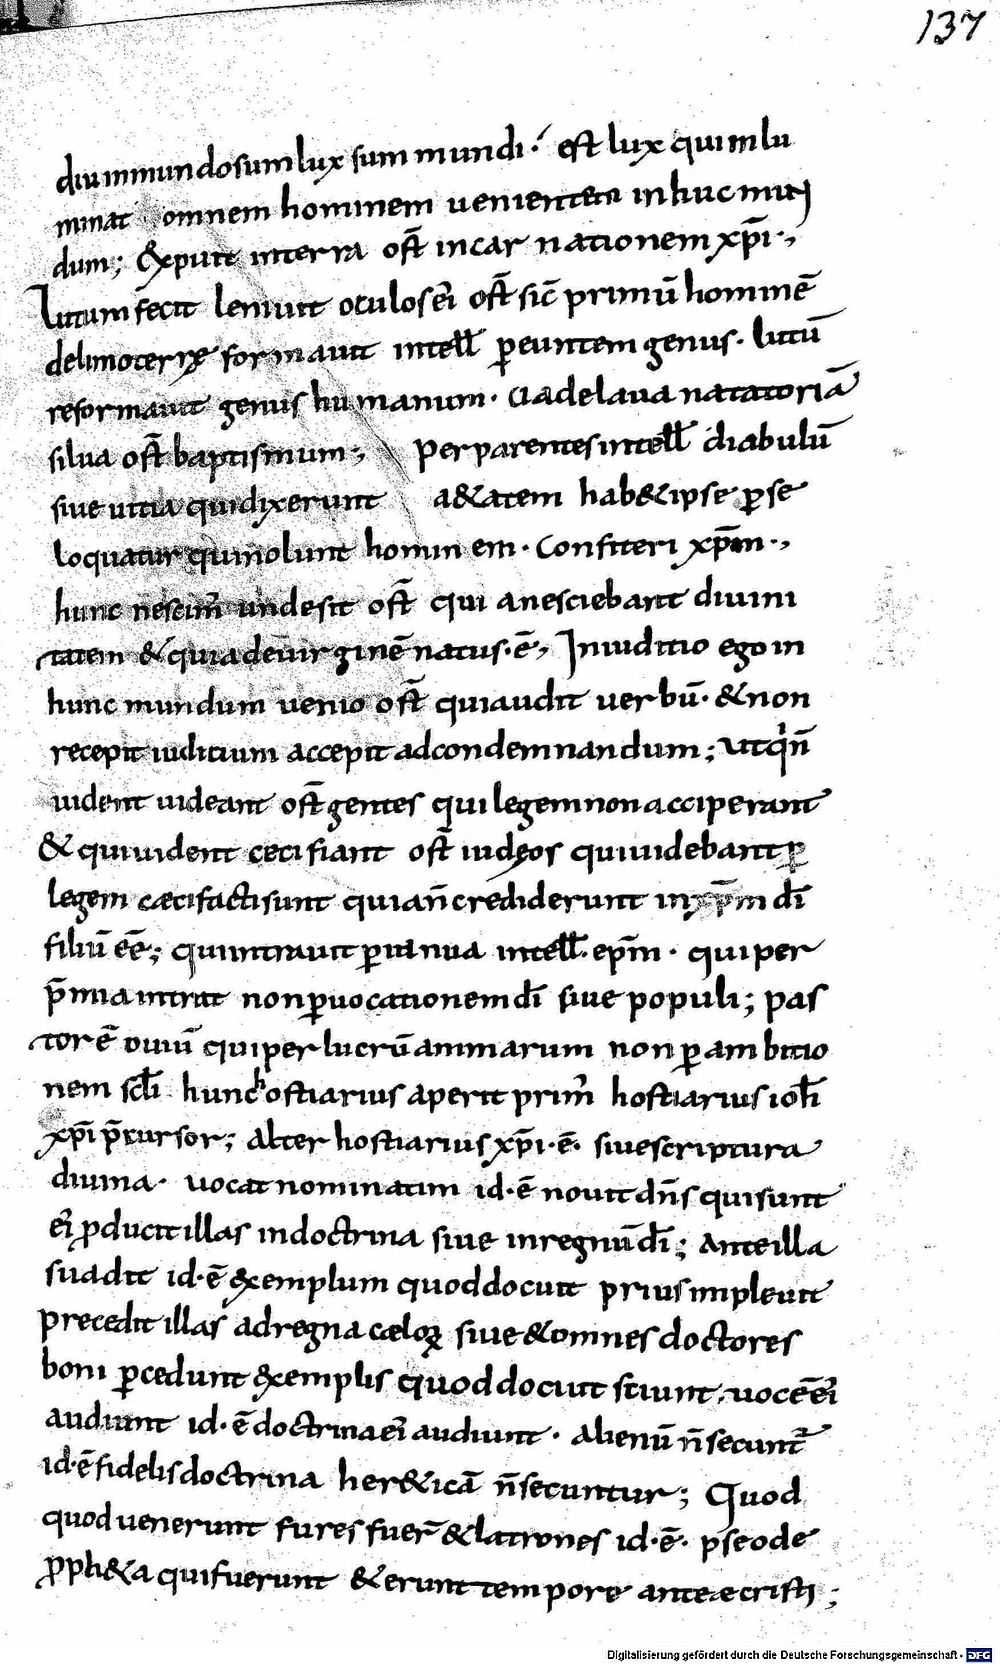 137
diu inmundosum lux sum mundi · est lux qui inlu
minat omnem hominem uenientem in huc mun
dum; & exput in terra ost̄ incarnationem xp̄i ·,
lutum fecit leniuit oculos ei ost̄ sic̄ primū hominē
de limo terrę formauit intell̄ p̄euntem genus · lutū
reformauit genus humanum · uade laua natatoriā
silua ost̄ baptismum ·, per parentes intell̄ diabulū
siue uitia qui dixerunt a&atem hab& ipse p̄ se
loquatur qui nolunt hominem · Confiteri xp̄m ·,
hunc nescim̄ unde sit ost̄ qui a nesciebant diuini
tatem & quia de uirginē natus · ē, In iuditio ego in
hunc mundum uenio ost̄ qui audit uerbū · & non
recepit iuditium accepit ad condemnandum; ut qi n̄
uident uideant ost̄ gentes qui legem non acciperant
& qui uident ceci fiant ost̄ iudęos qui uidebant p̄
legem cæci facti sunt quia n̄ crediderunt in xp̄m dī
filiū eē; qui intrauit p̄ ianua intell̄ · ep̄m · qui per
p̄mia intrat non p̄ uocationem dī siue populi; pas
torē ouiū qui per lucrū animarum non p̄ ambitio
nem scl̄i hunc hostiarius aperit prim̄ hostiarius ioh̄
xp̄i p̄cursor; alter hostiarius xp̄i · ē · siue scriptura
diuina · uocat nominatim id · ē nouit dn̄s qui sunt
ei p̄ducit illas in doctrina siue in regnū dī; Ante illa
suadit id · ē exemplum quod docuit prius impleuit
precedit illas ad regna cæloꝝ siue & omnes doctores
boni p̄cedunt exemplis quod docuit sciunt · uocē ei
audiunt id · ē doctrina ei audiunt · alienū n̄ secunt̄
id · ē fidelis doctrina her&icā n̄ secuntur; Quod
quod uenerunt fures fuer̄ & latrones id · ē · pseode
p̄ph&a qui fuerunt & erunt tempore ante æcristi;
Digitalisierung gefördert durch die Deutsche Forschungsgemeinschaft - DFG